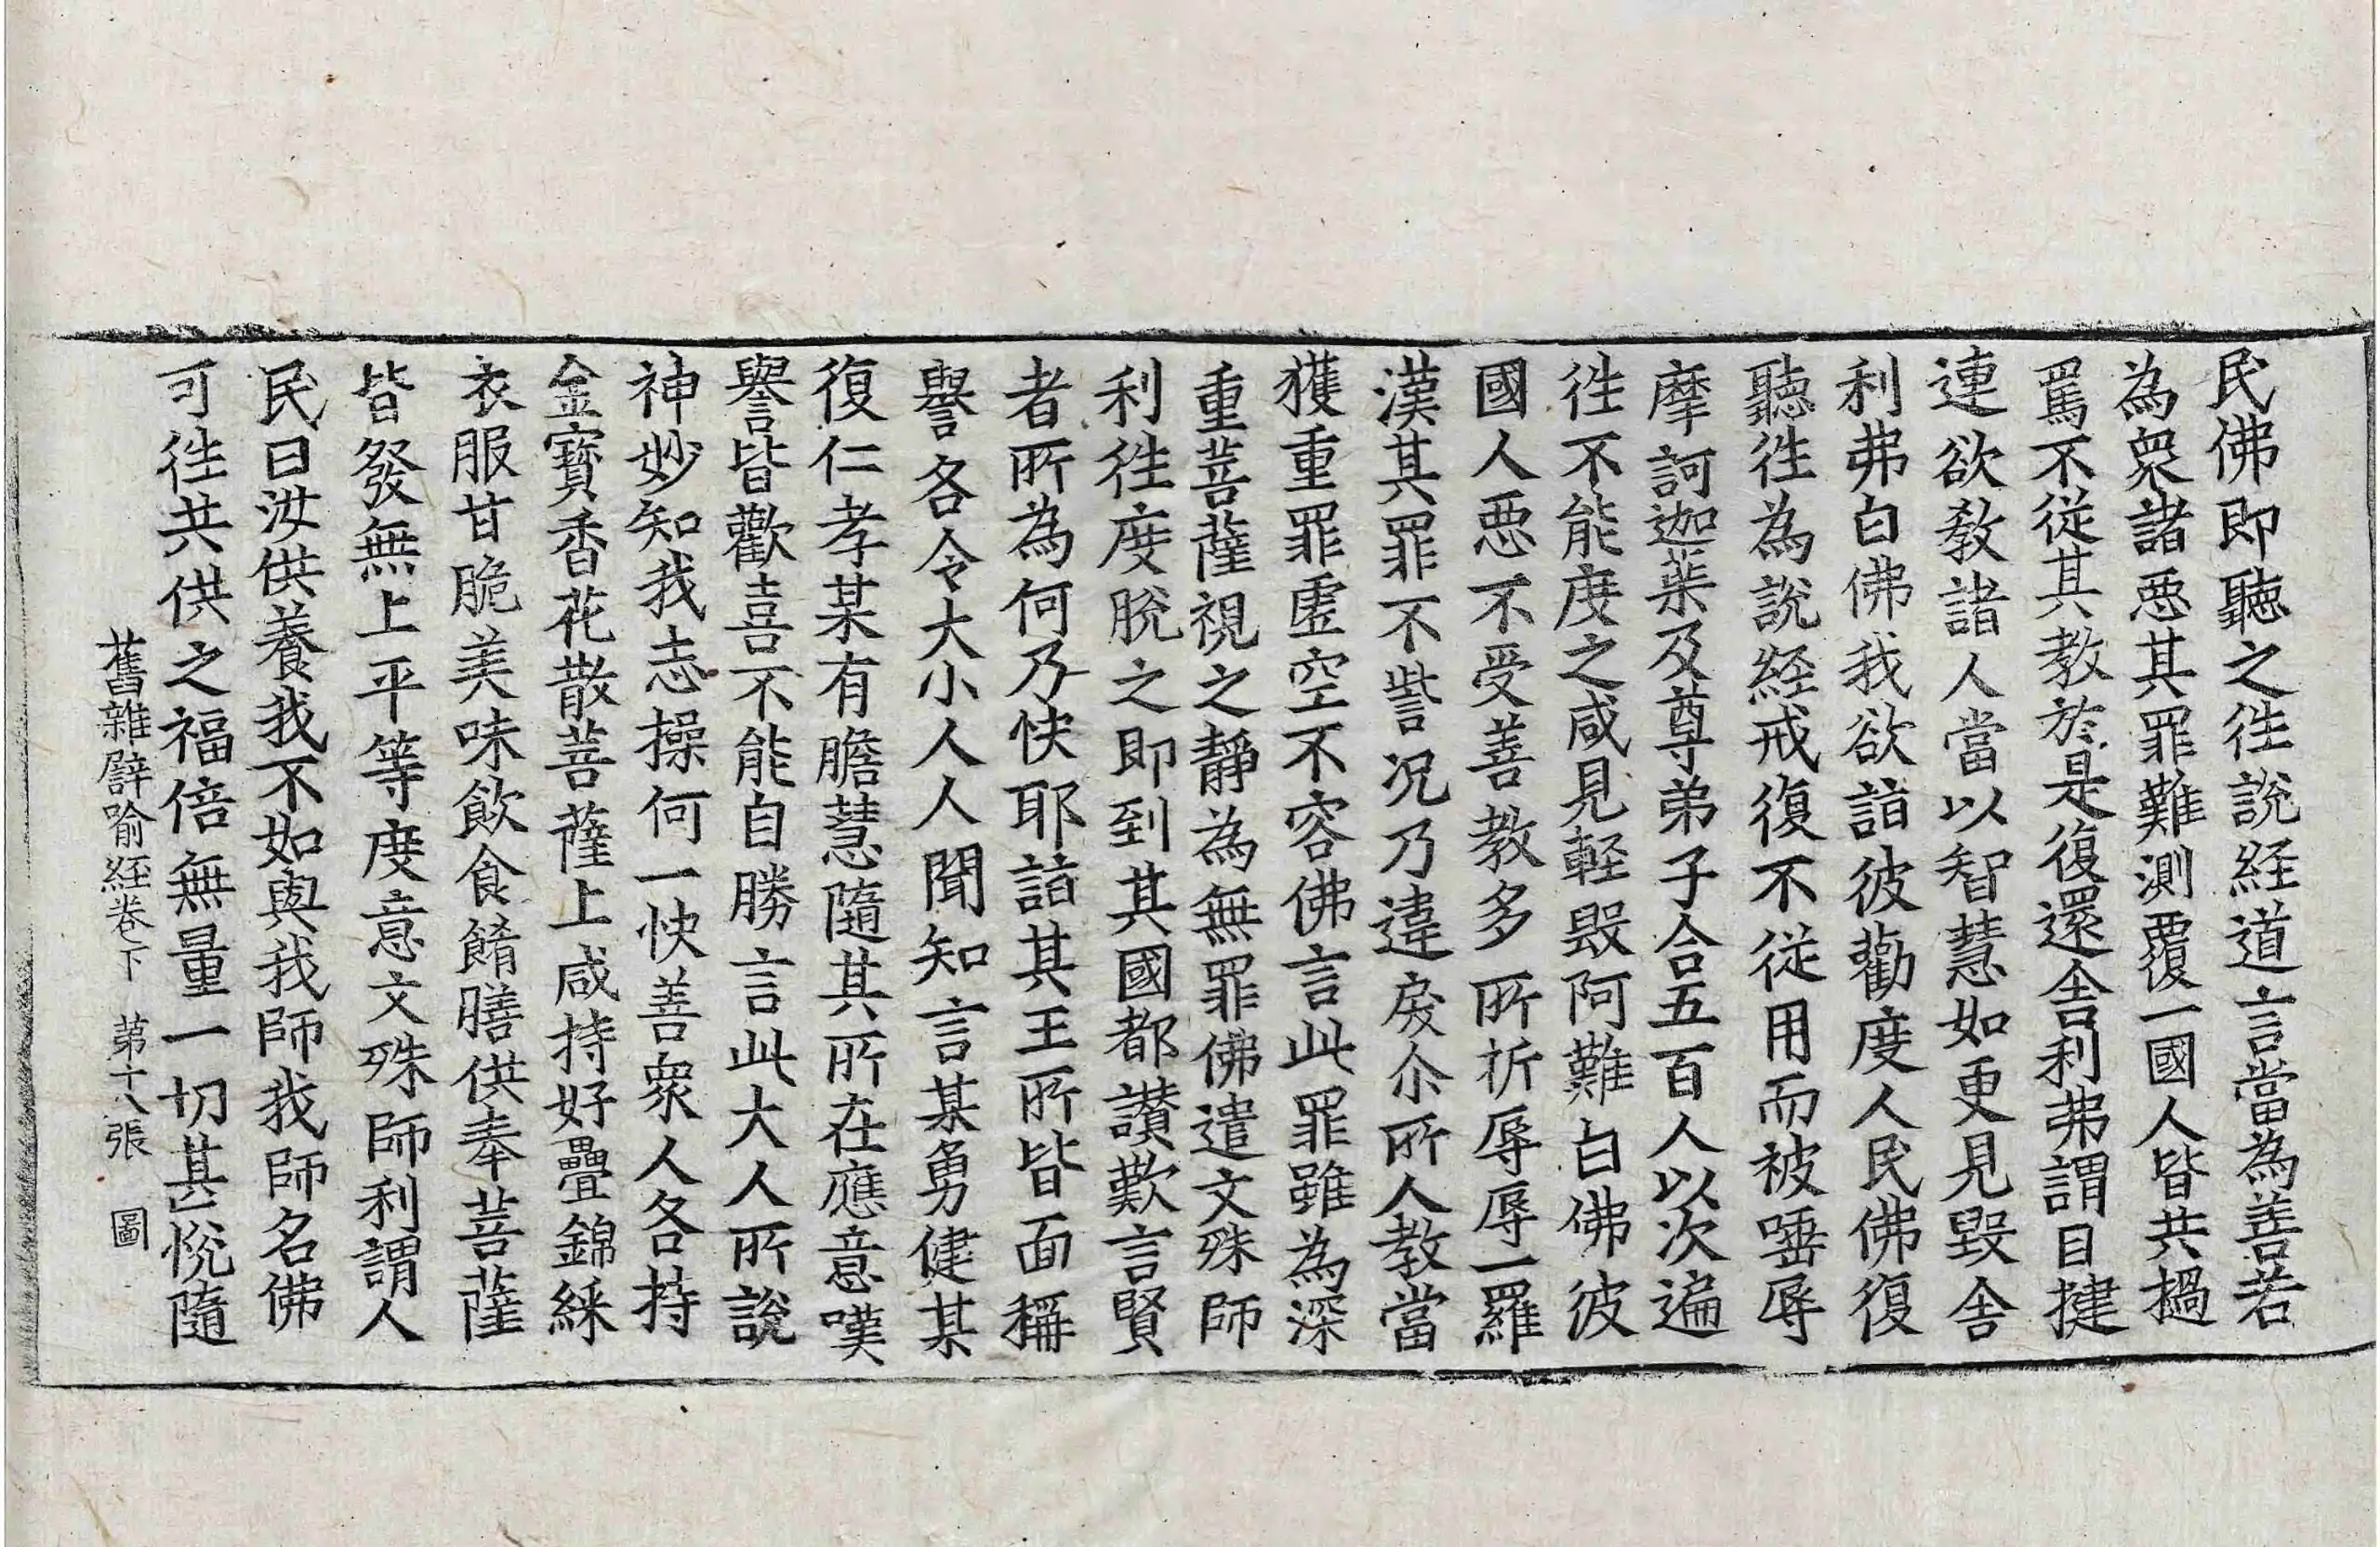 民佛即聽之徃說経道言當為善若
為衆諸惡其罪難測覆一國人皆共撾
罵不從其教於是復還舍利弗謂目揵
連欲教諸人當以智慧如更見毀舍
利弗白佛我欲詣彼勸度人民佛復
聽徃為說経戒復不從用而被唾辱
摩訶迦葉及尊弟子合五百人以次遍
徃不能度之咸見輕毀阿難白佛彼
國人惡不受善教多所折辱辱一羅
漢其罪不訾况乃違戾尒所人教當
獲重罪虛空不容佛言此罪雖為深
重菩薩視之靜為無罪佛遣文殊師
利徃度脫之即到其國都讃歎言賢
者所為何乃快耶詣其王所皆面稱
譽各令大小人人聞知言某勇健某
復仁孝某有膽慧隨其所在應意嘆
譽皆歡喜不能自勝言此大人所說
神妙知我志操何一快善衆人各持
金寶香花散菩薩上咸持好疊錦綵
衣服甘脆美味飲食餚膳供奉菩薩
皆發無上平等度意文殊師利謂人
民曰汝供養我不如與我師我師名佛
可徃共供之福倍無量一切甚悅隨
舊雜譬喻経卷下 第十八張 圖